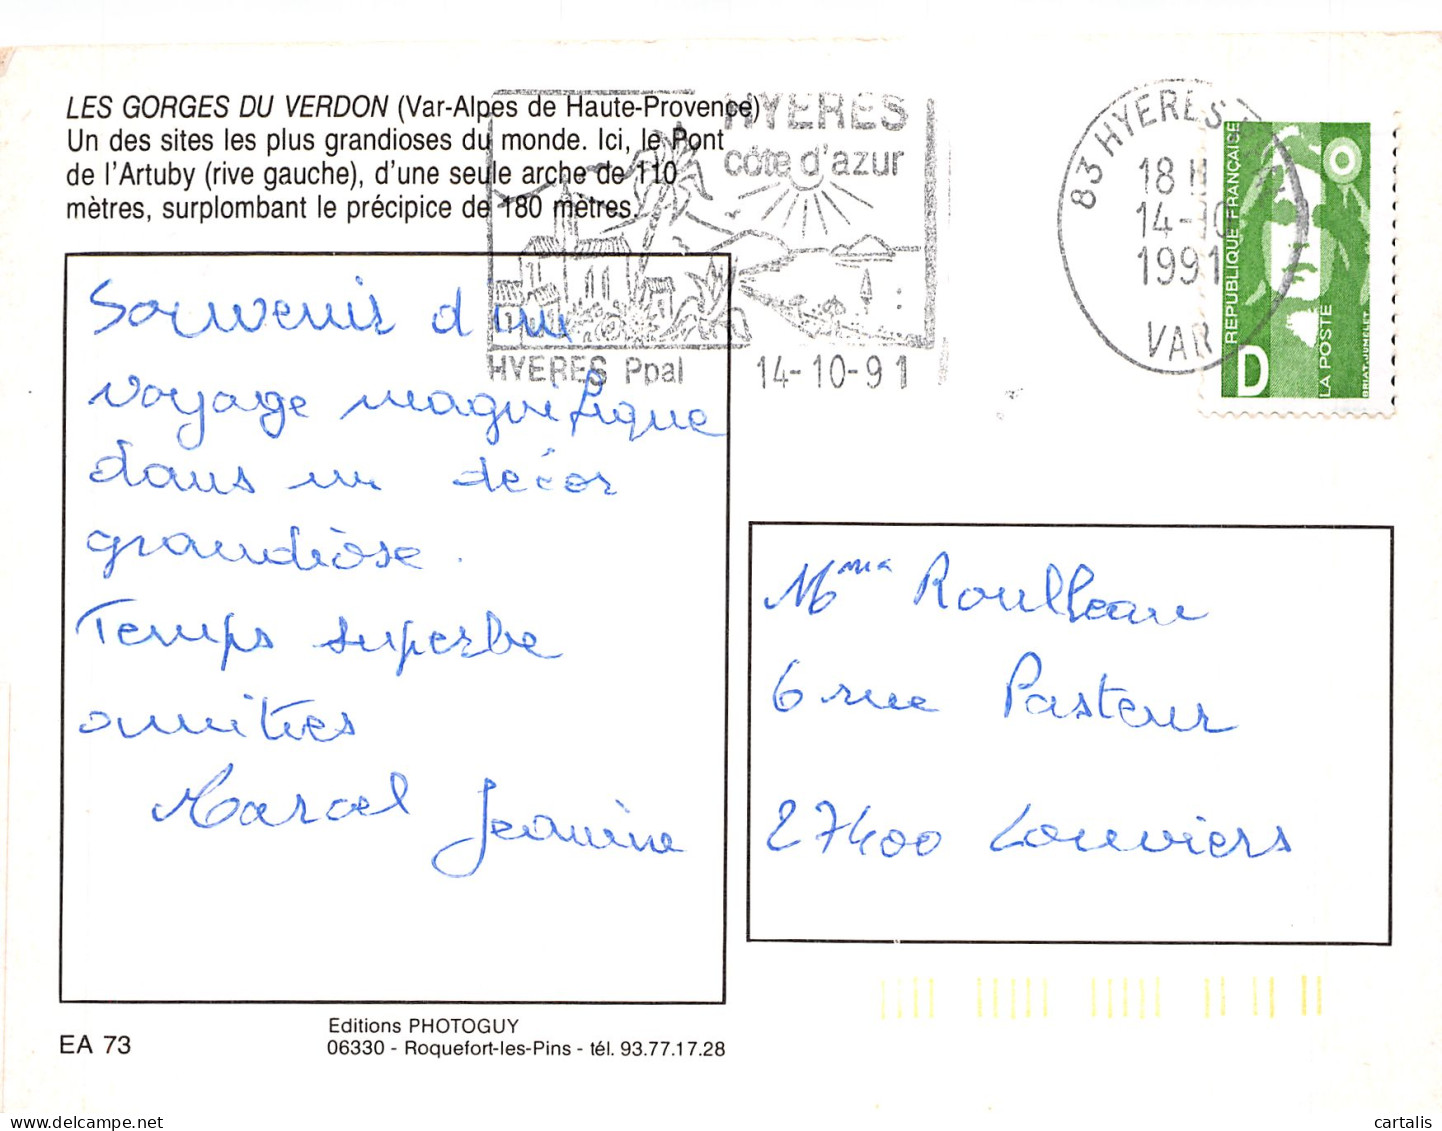 LES GORGES DU VERDON (Var-Alpes de Haute-Provence)
Un des sites les plus grandioses du monde. Ici, le Pont
de l'Artuby (rive gauche), d'une seule arche de 110
mètres, surplombant le précipice de 180 mètres.
HYERES
côte d'azur
HYERES Ppal 14-10-91
83 HYERES
18 H
14-10
1991
VAR
REPUBLIQUE FRANÇAISE
D
LA POSTE
BRIAT-JUMELET
Souvenir d'un
voyage magnifique
dans un décor
grandiose.
Temps superbe
amitiés
Marcel Jeanine
Roulleau
6 rue Pasteur
27400 Louviers
EA 73
Editions PHOTOGUY
06330 - Roquefort-les-Pins - tél. 93.77.17.28
cartalis
www.delcampe.net